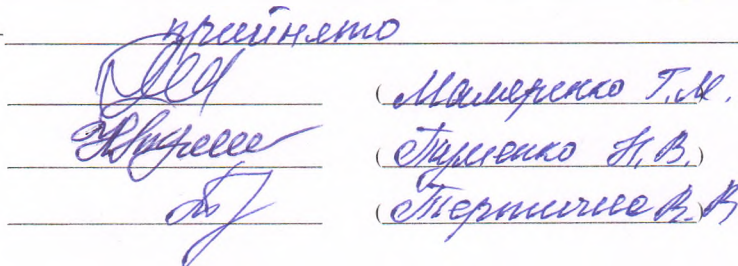 прийнято
(Мамеренко Т.М.
(Туменко Н.В.)
(Терпична В.В